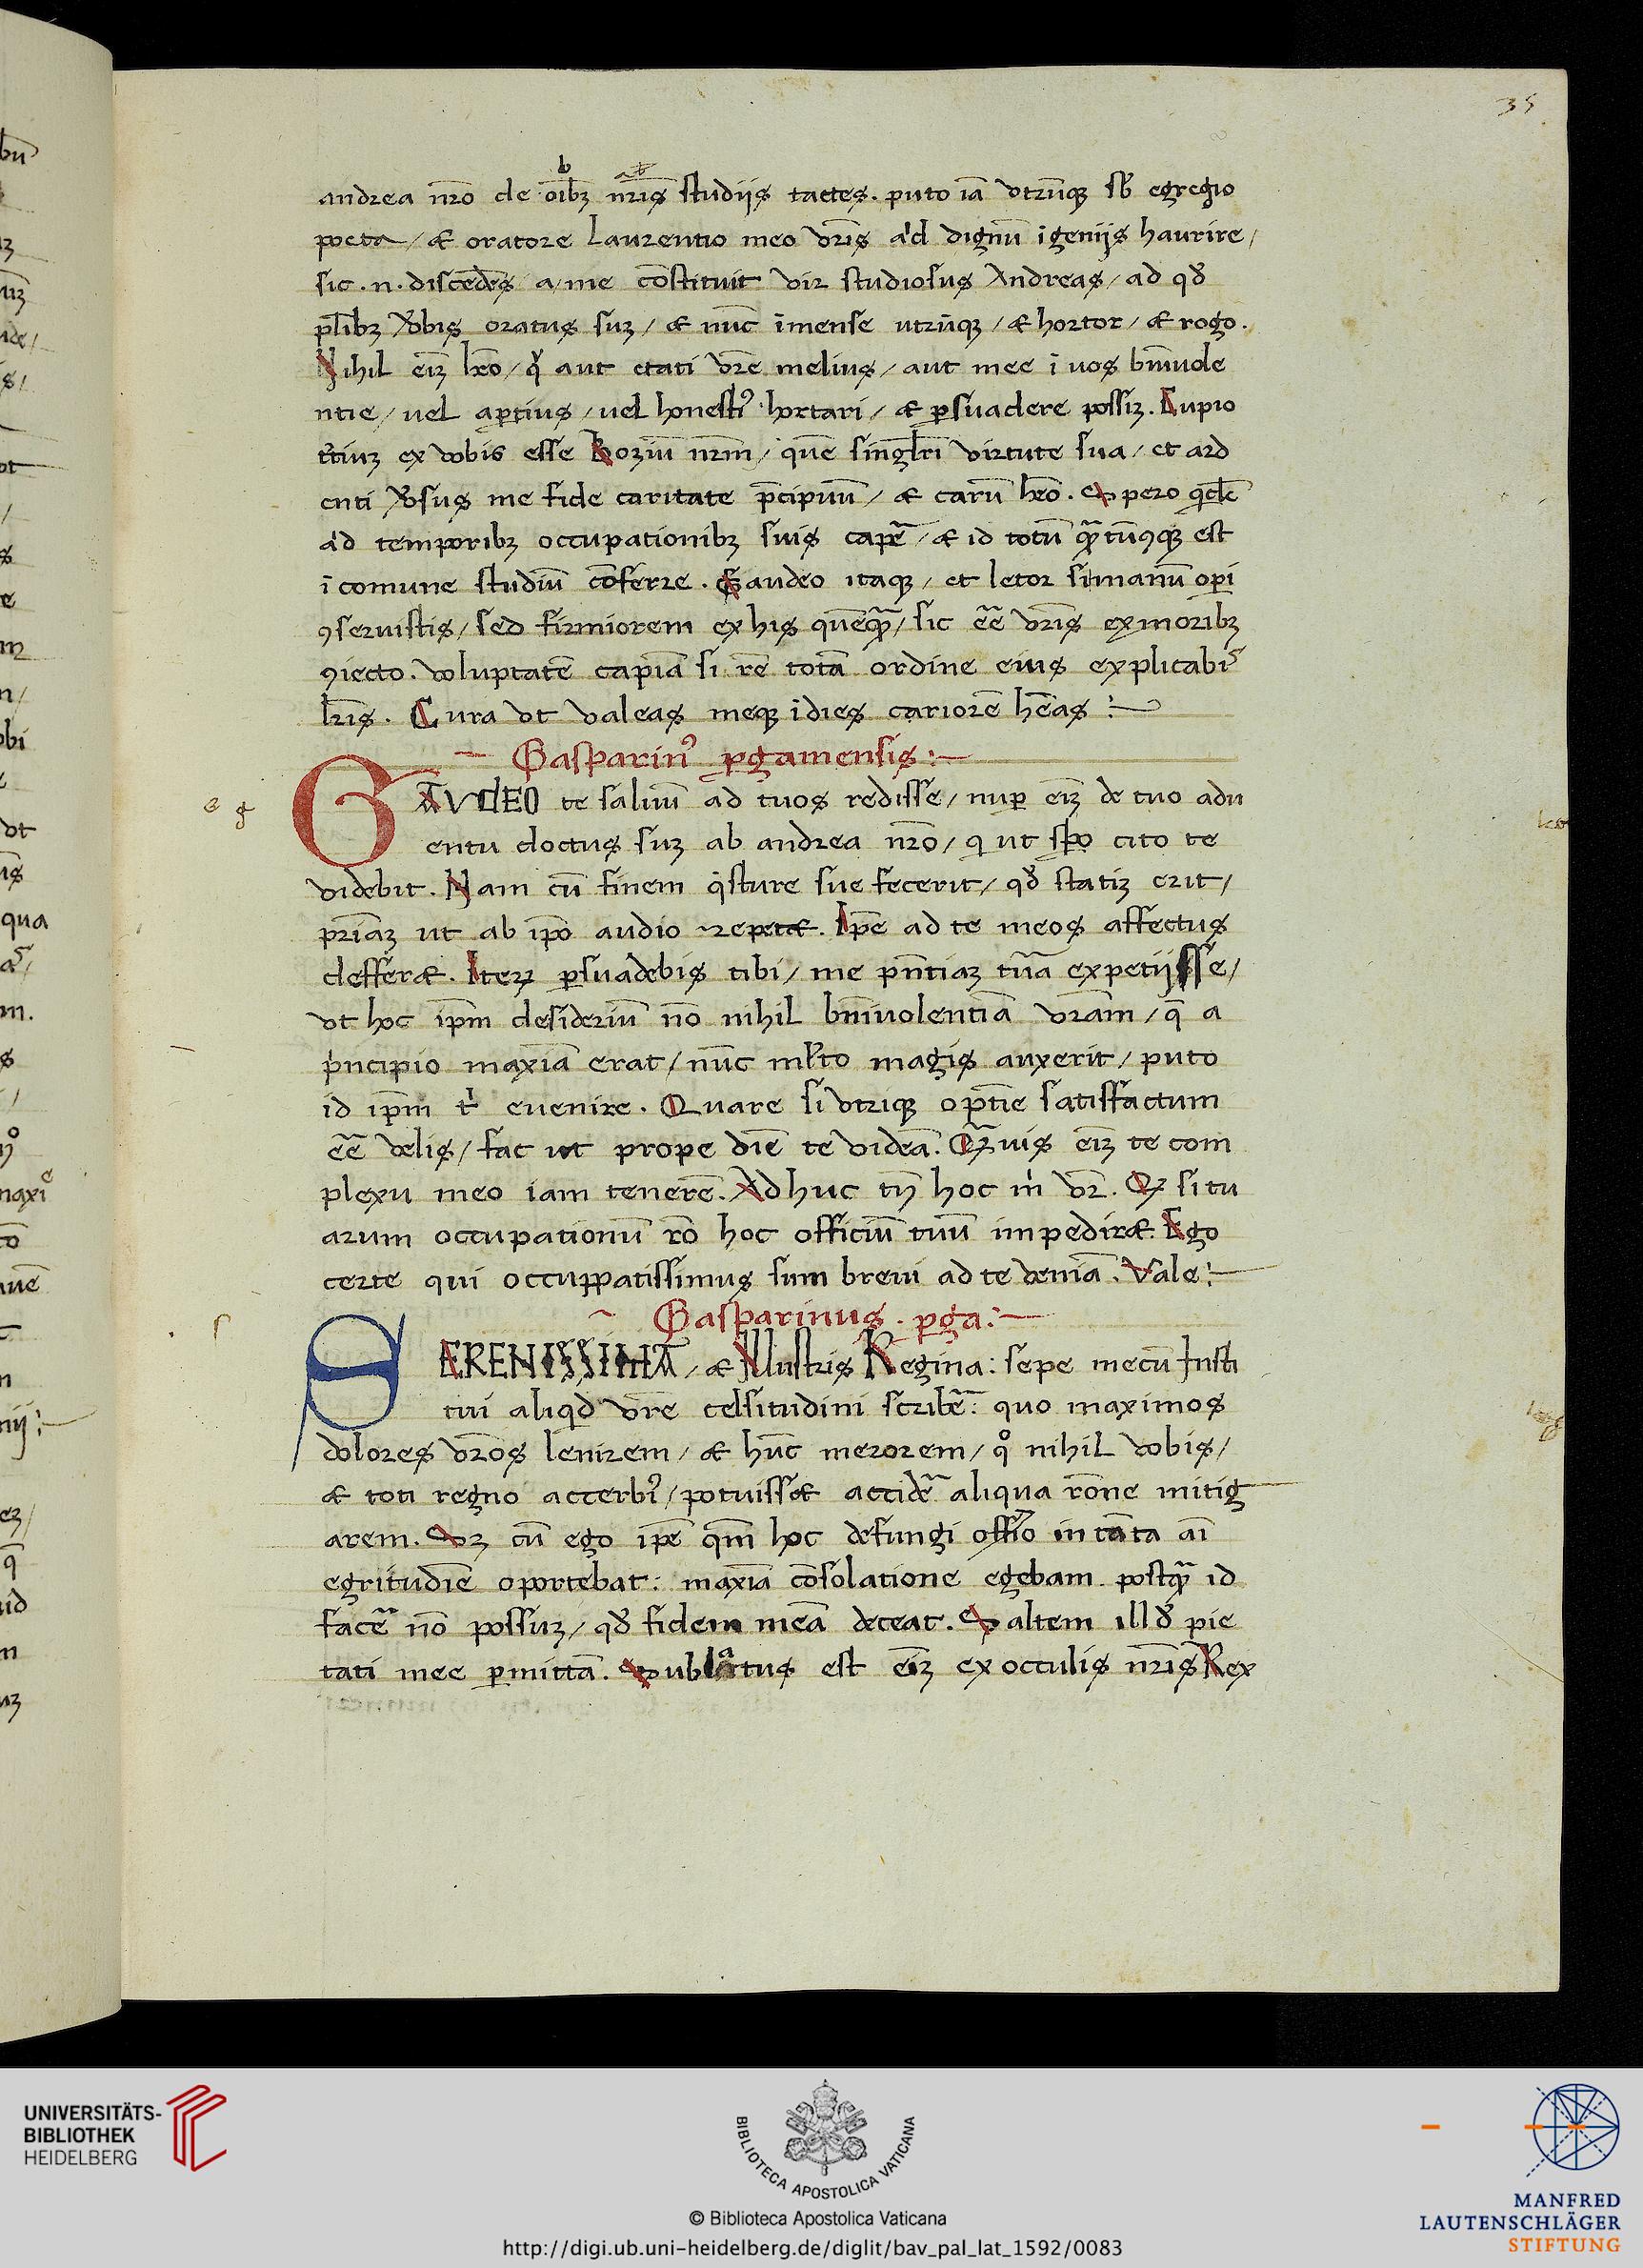 35
andrea nr̄o de oīb₃ nr̄is studijs tactes. puto iā vtrūq₃ sb egregio
poeta / & oratore Laurentio meo vr̄is a'd dignū īgeniis haurire /
sic .n. discedēs a / me cōstituit vir studiosus Andreas / ad qđ
plīb₃ v̆bis oratus su₃ / & nūc īmense utrūq₃ / & hortor / & rogo.
Nihil ei₃ heō / q̆ aut etati vr̄e melius / aut mee ī uos bn̄iuole
ntie / uel aptius / uel honesti⁹ hortari / & psuadere possi₃. Cupio
tt̄iu₃ ex vobis esse Boziū nr̄m / quē singlr̄i virtute sua / et ard
enti v̆sus me fide caritate p̄cipuū / & carū heō. Spero
a'd temporib₃ occupationib₃ suis capē / & id totū q̄tūcq₃ est
ī comune studiū cōferre. Gaudeo itaq₃ / et letor si manū opi
ꝯseruistis / sed firmiorem ex his quēq̄ / sic eē vr̄is ex morib₃
ꝯiecto. voluptatē capiā si rē totā ordine eius explicabi⁹
lr̄is. Cura vt valeas meq₃ īdies cariorē hēas :~
Gasparin⁹ pgamensis :—
e g
GAVDEO te saluū ad tuos redisse / nup ei₃ de tuo adu
entu doctus su₃ ab andrea nr̄o / q ut spo cito te
videbit. Nam cū finem q̇sture sue fecerit / qđ stati₃ erit /
pr̄ia₃ ut ab ip̄o audio repet&. Ip̄e ad te meos affectus
deffer&. Ite₃ psuadebis tibi / me pn̄tia₃ tuā expetijsse /
vt hoc ip̄m desideriū nō nihil bn̄iuolentiā vrām / q̄ a
pncipio maxīa erat / nūc ml̄to magis auxerit / puto
id ip̄m t' euenire. Quare si vtriq₃ optīe satisfactum
eē velis / fac ut prope diē te videā. Q₃uis ei₃ te com
plexu meo iam tenerē. Adhuc tn̄ hoc m' vr̄. Q₃ si tu
arum occupationū rō hoc officiū tuū impedir&. Ego
certe qui occuppatissimus sum breui ad te veniā. Vale :—
Gasparinus . pga :—
SERENISSIMA / & Illustris Regina : sepe mecū Insti
tui aliquid vr̄e celsitudini scribē : quo maximos
dolores vr̄os lenirem / & hūc merorem / q° nihil vobis /
& toti regno accerbi⁹ / potuiss& accidē aliqua rōne mitig
arem. S₃ cū ego ip̄e qm̄ hoc defungi offīo in tāta aī
egritudīe oportebat : maxīa cōsolatione egebam. postq̄ id
facē nō possu₃ / qđ fidem meā deceat. Saltem illđ pie
tati mee pmittā. Sublatus est ei₃ ex occulis nr̄is Rex
UNIVERSITÄTS-
BIBLIOTHEK
HEIDELBERG
BIBLIOTECA APOSTOLICA VATICANA
© Biblioteca Apostolica Vaticana
http://digi.ub.uni-heidelberg.de/diglit/bav_pal_lat_1592/0083
MANFRED
LAUTENSCHLÄGER
STIFTUNG